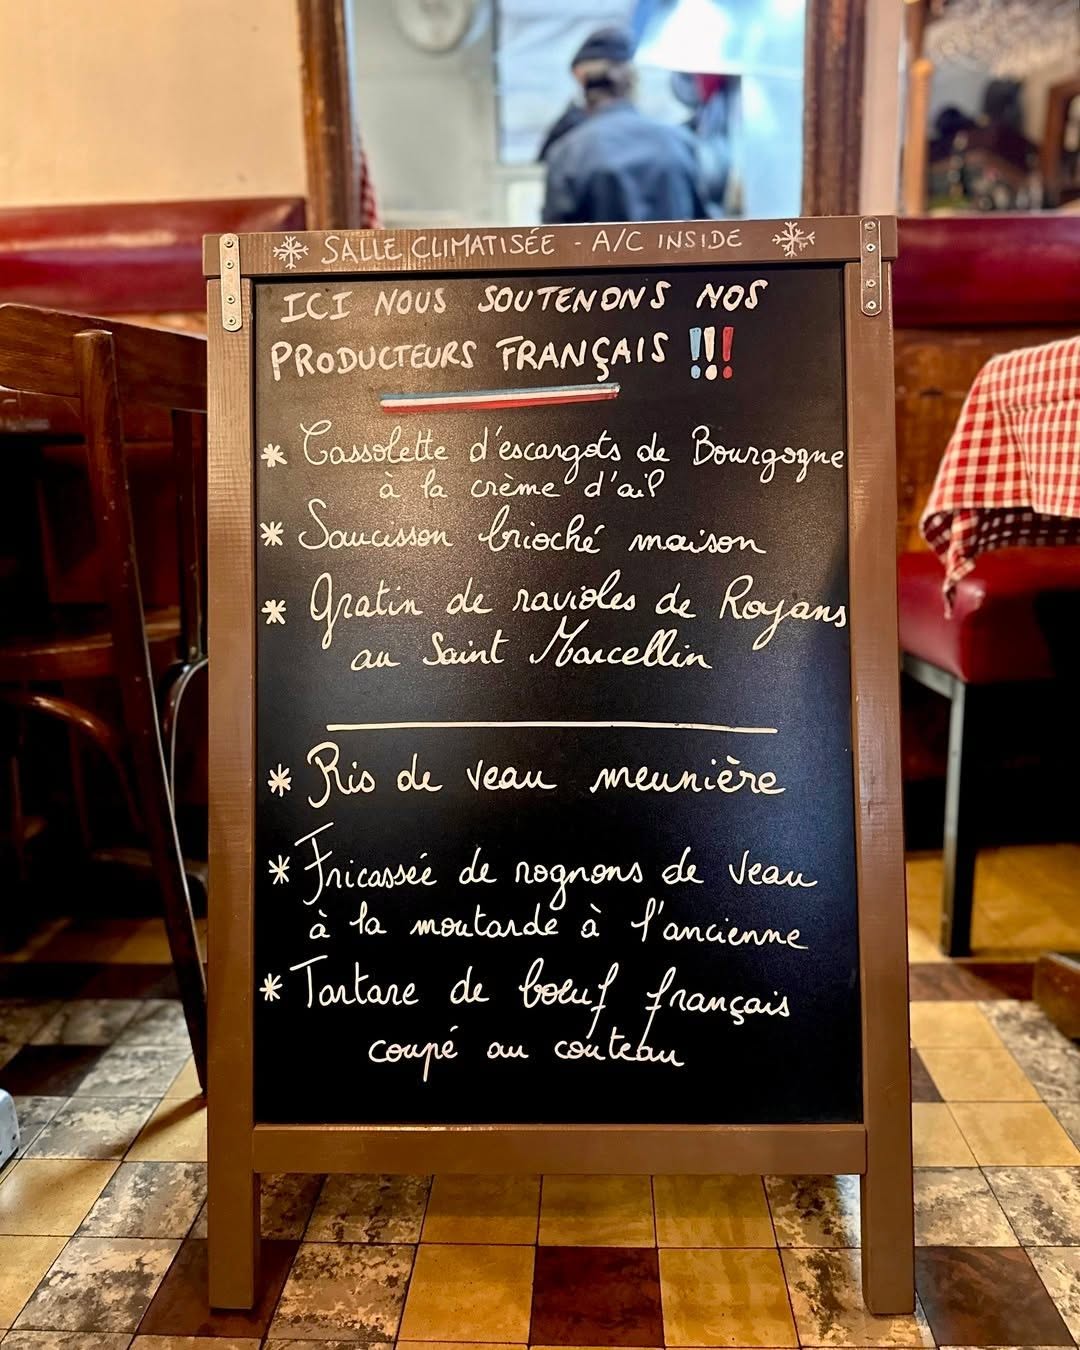 SALLE CLIMATISÉE - A/C INSIDE
ICI NOUS SOUTENONS NOS
PRODUCTEURS FRANÇAIS !!!
* Cassolette d'escargots de Bourgogne
à la crème d'ail
* Saucisson brioché maison
* Gratin de ravioles de Royans
au Saint Marcellin
* Ris de veau meunière
* Fricassée de rognons de veau
à la moutarde à l'ancienne
* Tartare de boeuf français
coupé au couteau